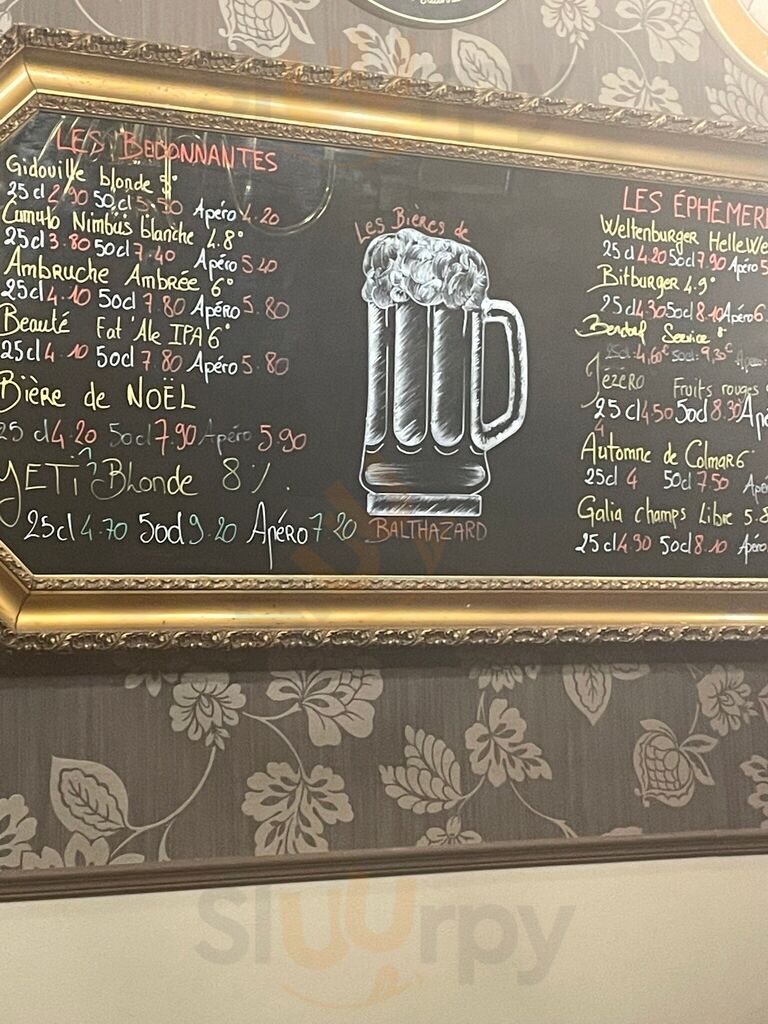 LES BEDONNANTES
Gidouille blonde
25 cl 2.90 50 cl 5.50 Apéro 4.20
Cumulo Nimbus blanche 4.8°
25 cl 3.80 50 cl 7.40 Apéro 5.40
Ambruche Ambrée 6°
25 cl 4.10 50 cl 7.80 Apéro 5.80
Beauté Fat'Ale IPA 6°
25 cl 4.10 50 cl 7.80 Apéro 5.80
Bière de NOËL
25 cl 4.20 50 cl 7.90 Apéro 5.90
YETI Blonde 8%.
25 cl 4.70 50 cl 9.20 Apéro 7.20
Les Bières de
BALTHAZARD
LES ÉPHÉMER
Weltenburger Helle We
25 cl 4.20 50 cl 7.90 Apéro 5
Bitburger 4.9°
25 cl 4.30 50 cl 8.10 Apéro 6.
Service
25 cl: 4,60€ 50 cl: 9,30€
Jezero Fruits rouges
25 cl 4.50 50 cl 8.30 Apé
Automne de Colmar 6°
25 cl 4 50 cl 7.50 Apé
Galia champs Libre 5.8
25 cl 4.30 50 cl 8.10 Apéro
sluurpy